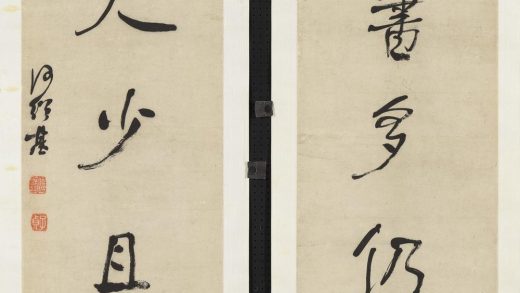 書多仍
人少且
何紹基